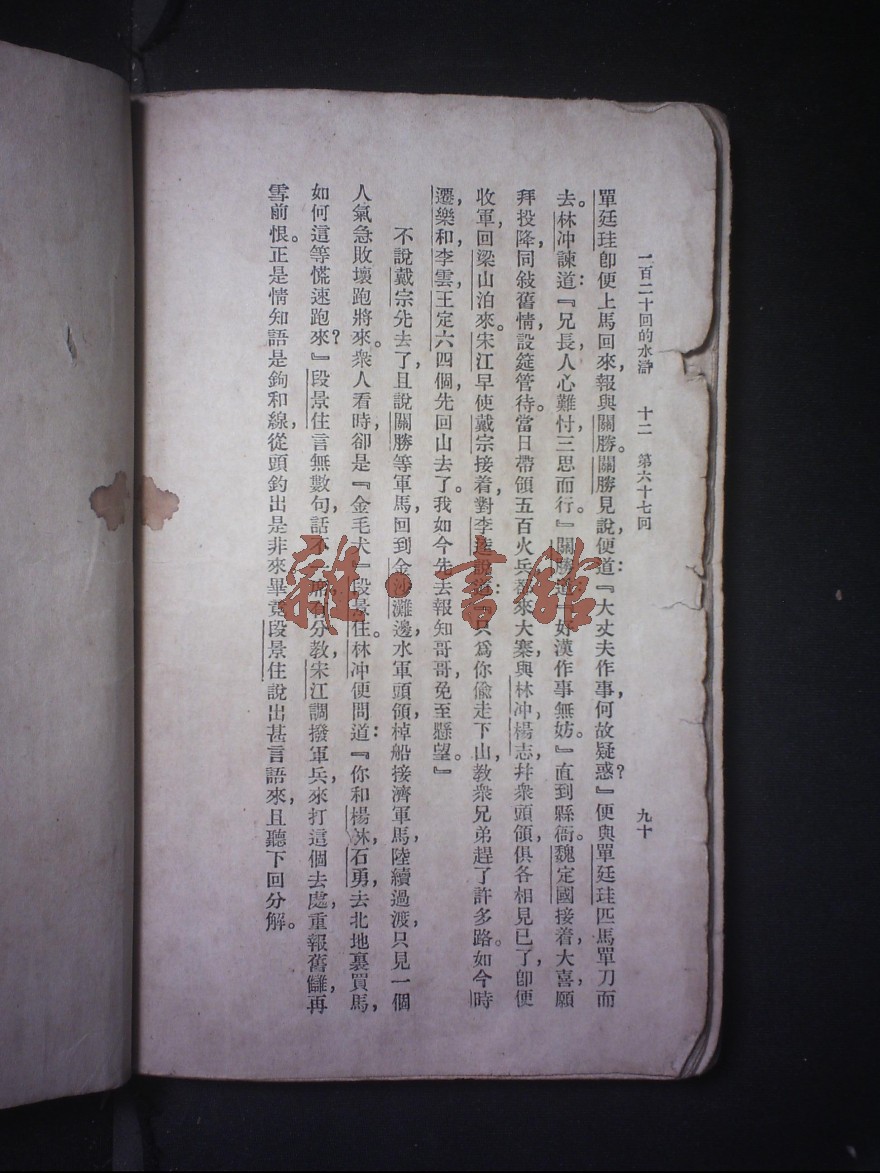 一百二十回的水滸 十二 第六十七回 九十
單廷珪卽便上馬回來,報與關勝。關勝見說,便道:『大丈夫作事,何故疑惑?』便與單廷珪匹馬單刀而
去。林冲諫道:『兄長,人心難忖,三思而行。』關勝道:『好漢作事無妨。』直到縣衙。魏定國接着,大喜,願
拜投降,同敍舊情,設筵管待。當日帶領五百火兵,都來大寨,與林冲,楊志,幷衆頭領,俱各相見已了,卽便
收軍,回梁山泊來。宋江早使戴宗接着,對李逵說道:『只爲你偸走下山,教衆兄弟趕了許多路。如今時
遷,樂和,李雲,王定六四個,先回山去了。我如今先去報知哥哥,免至懸望。』
不說戴宗先去了,且說關勝等軍馬,回到金沙灘邊,水軍頭領,棹船接濟軍馬,陸續過渡,只見一個
人氣急敗壞跑將來。衆人看時,卻是『金毛犬』段景住。林冲便問道:『你和楊林,石勇,去北地裏買馬,
如何這等慌速跑來?』段景住言無數句,話不 有分教,宋江調撥軍兵,來打這個去處,重報舊讎,再
雪前恨。正是情知語是鉤和線,從頭釣出是非來。畢竟段景住說出甚言語來,且聽下回分解。
雜·書館